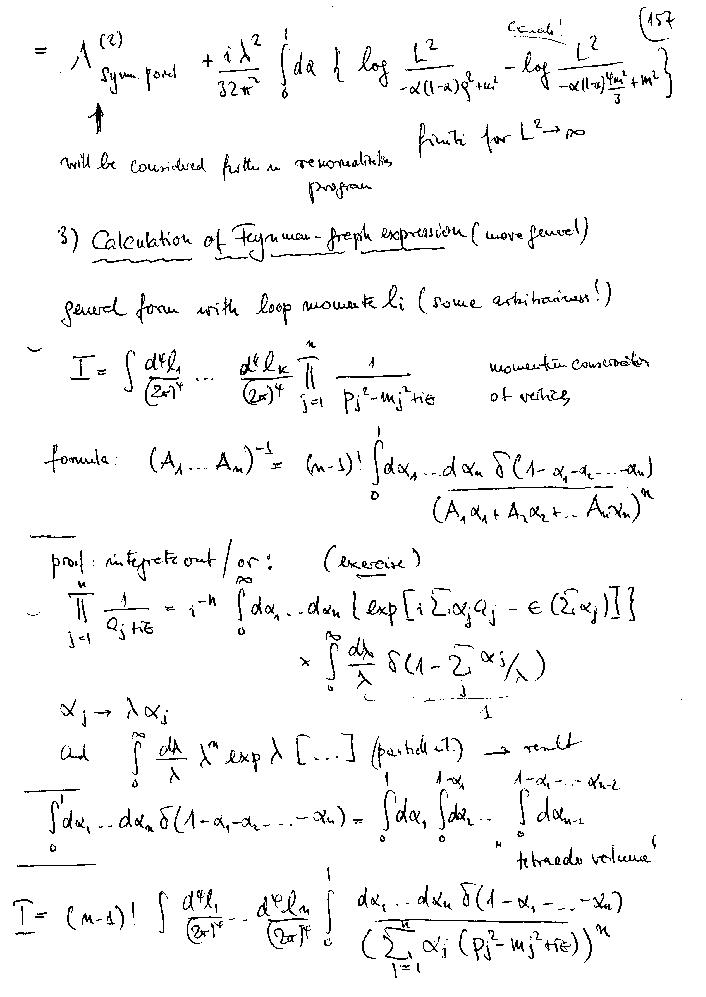 (157
= Λ^{(2)}_{symm. point} + \frac{iλ^2}{32π^2} \int_0^1 dα { log \frac{L^2}{-α(1-α)q^2+m^2} - log \frac{L^2}{-α(1-α)\frac{4m^2}{3}+m^2} }
↑
finite for L^2 → ∞
will be considered further in renormalization
program
3) Calculation of Feynman-graph expression (more general)
general form with loop momenta l_i (some arbitrariness!)
I = \int \frac{d^4l_1}{(2π)^4} ... \frac{d^4l_k}{(2π)^4} \prod_{j=1}^n \frac{1}{p_j^2-m_j^2+iε} momentum conservation
at vertices
formula: (A_1...A_n)^{-1} = (n-1)! \int_0^1 \frac{dα_1...dα_n δ(1-α_1-α_2...-α_n)}{(A_1α_1+A_2α_2+...A_nα_n)^n}
proof: integrate out / or: (exercise)
\prod_{j=1}^n \frac{1}{a_j+iε} = i^{-n} \int_0^∞ dα_1...dα_n { exp[i Σα_j a_j - ε(Σα_j)] }
× \int_0^∞ \frac{dλ}{λ} δ(1-Σ_j α_j/λ)
1
α_j → λα_j
and \int_0^∞ \frac{dλ}{λ} λ^n exp λ[...] (partial int.) → result
\int_0^1 dα_1...dα_n δ(1-α_1-α_2-...-α_n) = \int_0^1 dα_1 \int_0^{1-α_1} dα_2 ... \int_0^{1-α_1-...-α_{n-2}} dα_{n-1}
"tetraeder volume"
I = (n-1)! \int \frac{d^4l_1}{(2π)^4} ... \frac{d^4l_n}{(2π)^4} \int_0^1 \frac{dα_1...dα_n δ(1-α_1-...-α_n)}{(Σ_{j=1}^n α_j(p_j^2-m_j^2+iε))^n}